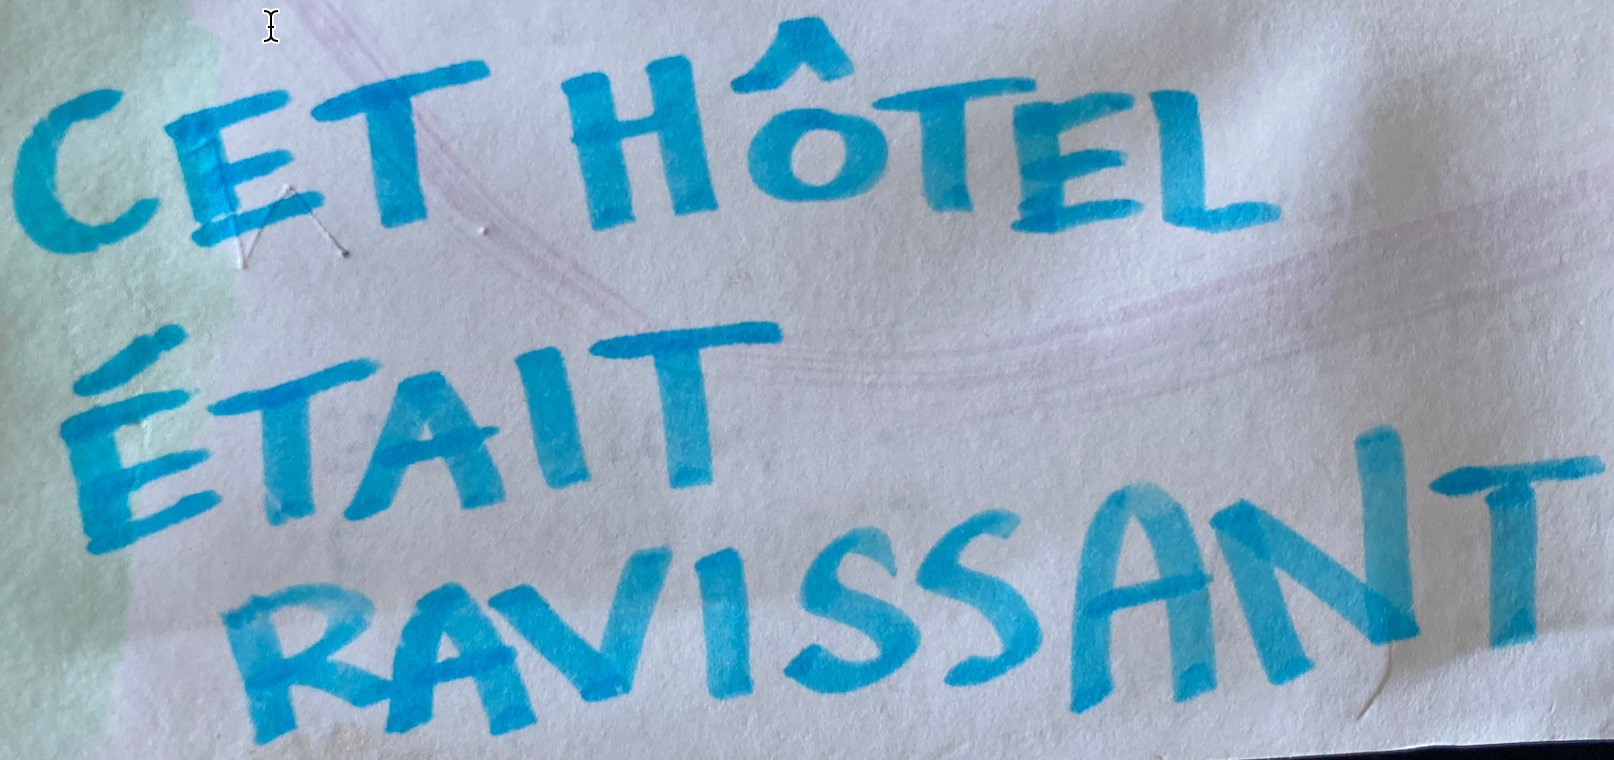 CET HÔTEL
ÉTAIT
RAVISSANT